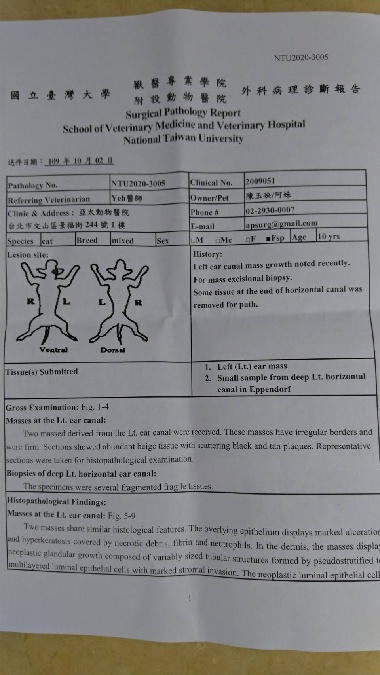 NTU2020-3005
國立臺灣大學 獸醫專業學院 附設動物醫院 外科病理診斷報告
Surgical Pathology Report
School of Veterinary Medicine and Veterinary Hospital
National Taiwan University
送件日期: 109 年 10 月 02 日
Pathology No. NTU2020-3005 Clinical No. 2009051
Referring Veterinarian Yeh醫師 Owner/Pet
Clinic & Address : 亞太動物醫院 Phone # 02-2930-0007
台北市文山區景福街 244 號 1 樓 E-mail apsurg@gmail.com
Species cat Breed mixed Sex □M □Mc □F ■Fsp Age 10 yrs
Lesion site: History:
Left ear canal mass growth noted recently.
For mass excisional biopsy.
Some tissue at the end of horizontal canal was
removed for path.
R L L R
Ventral Dorsal
Tissue(s) Submitted
1. Left (Lt.) ear mass
2. Small sample from deep Lt. horizontal
canal in Eppendorf
Gross Examination: Fig. 1-4
Masses at the Lt. ear canal:
Two massed derived from the Lt. ear canal were received. These masses have irregular borders and
were firm. Sections showed abundant beige tissue with scattering black and tan plaques. Representative
sections were taken for histopathological examination.
Biopsies of deep Lt. horizontal ear canal:
The specimens were several fragmented fragile tissues.
Histopathological Findings:
Masses at the Lt. ear canal: Fig. 5-9
Two masses share similar histological features. The overlying epithelium displays marked ulceration
and hyperkeratosis covered by necrotic debris, fibrin and neutrophils. In the dermis, the masses display
neoplastic glandular growth composed of variably sized tubular structures formed by pseudostratified to
multilayered luminal epithelial cells with marked stromal invasion. The neoplastic luminal epithelial cells
1